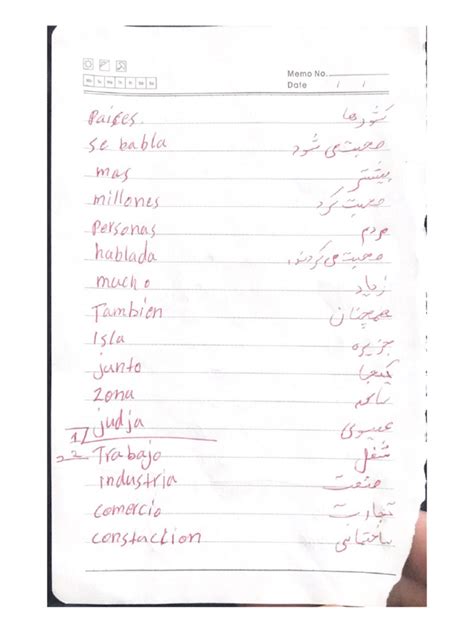 Memo No.
Date / /
Paises. کشورها
se babla صحبت می شود
mas بیشتر
millones صحبت کرد
Personas مردم
hablada صحبت می کردند
mucho زیاد
Tambien همچنان
Isla جزیره
junto یکجا
Zona
1 judja عیسوی
2 Trabajo شغل
industria صنعت
comercio تجارت
constaction ساختمانی